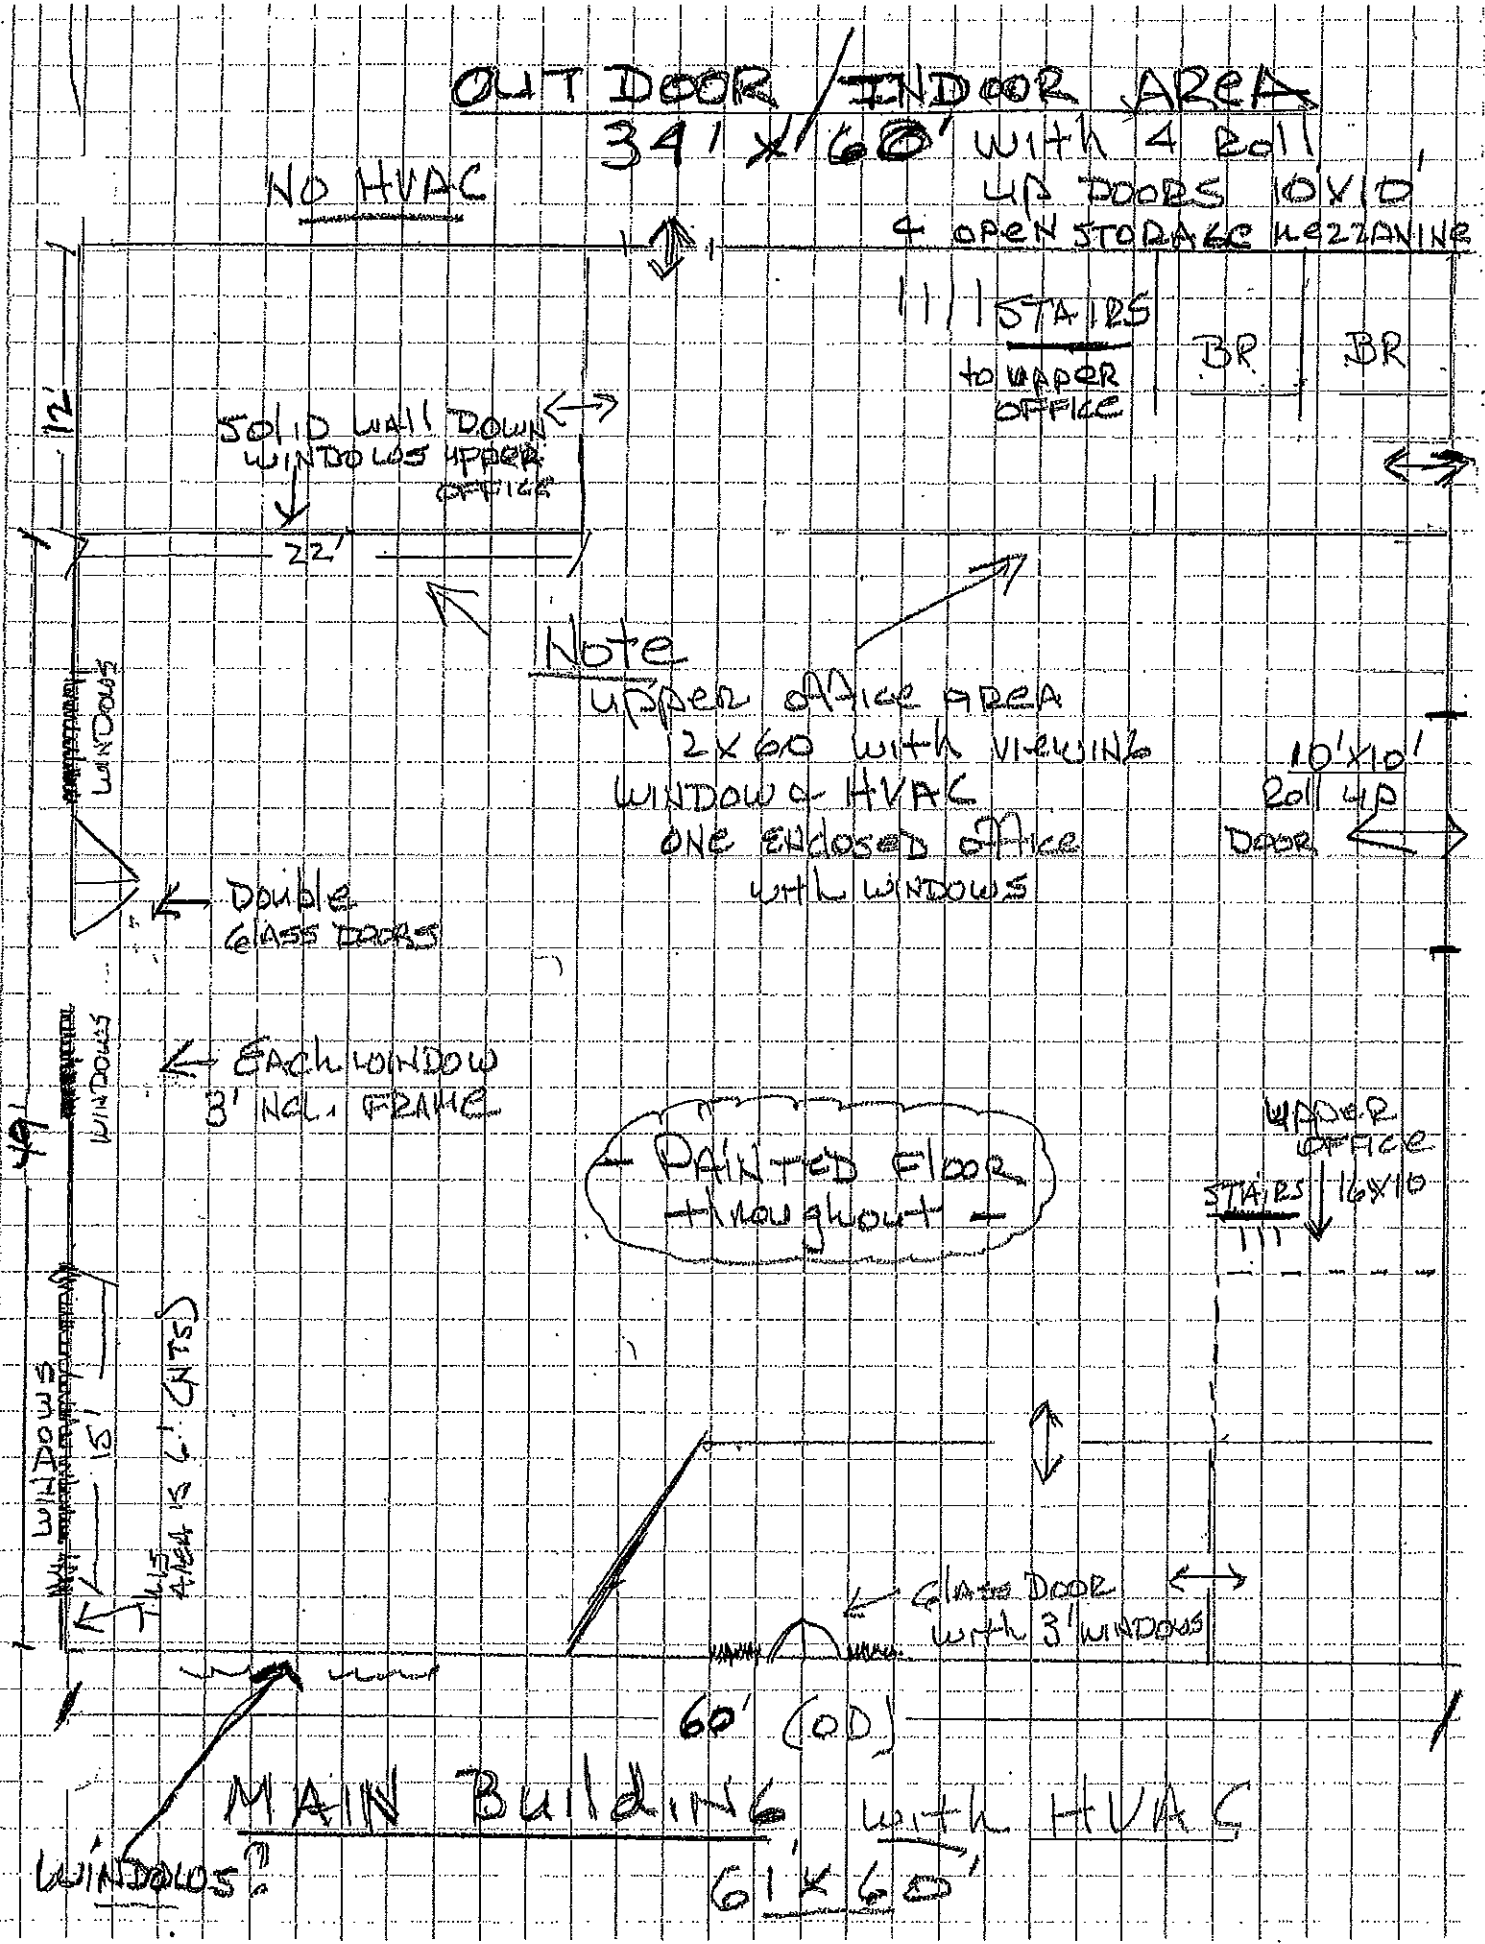 OUTDOOR / INDOOR AREA
34' X 60' with 4 Roll
up DOORS 10'X10'
& OPEN STORAGE MEZZANINE
NO HVAC
12'
STAIRS
to upper
OFFICE
BR
BR
SOLID WALL DOWN
WINDOWS UPPER
OFFICE
22'
Note
upper office AREA
12X60 with VIEWING
WINDOW & HVAC
ONE ENCLOSED office
with WINDOWS
10'X10'
Roll up
DOOR
WINDOWS
Double
GLASS DOORS
WINDOWS
EACH WINDOW
3' INCL. FRAME
49'
- PAINTED Floor
throughout -
UPPER
OFFICE
STAIRS 16X10
WINDOWS
15'
THIS
AREA IS 6' (NTS)
GLASS DOOR
with 3' WINDOWS
60' (OD)
MAIN BuildiNG with HVAC
61' X 60'
WINDOWS?